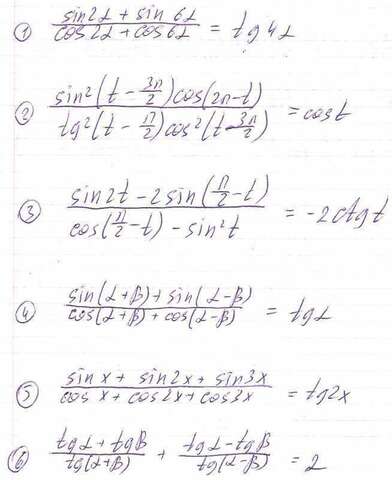 ① (sin2α + sin 6α)/(cos2α + cos6α) = tg4α
② (sin²(t - 3π/2)cos(2π-t))/(tg²(t - π/2)cos²(t - 3π/2)) = cost
③ (sin2t - 2sin(π/2 - t))/(cos(π/2 - t) - sin²t) = -2ctgt
④ (sin(α+β) + sin(α-β))/(cos(α+β) + cos(α-β)) = tgα
⑤ (sin x + sin2x + sin3x)/(cos x + cos2x + cos3x) = tg2x
⑥ (tgα + tgβ)/(tg(α+β)) + (tgα - tgβ)/(tg(α-β)) = 2